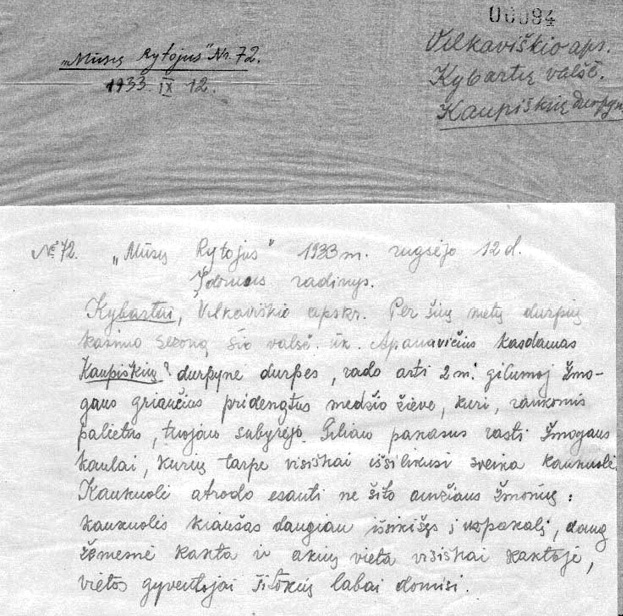 00094
„Mūsų Rytojus" Nr. 72.
1933 IX 12.
Vilkaviškio aps.
Kybartų valšč.
Kaupiškių durpyn
№ 72. „Mūsų Rytojus" 1933 m. rugsėjo 12 d.
Įdomus radinys.
Kybartai, Vilkaviškio apskr. Per šių metų durpių
kasimo sezoną šio valsč. ūk. Apanavičius kasdamas
Kaupiškių durpyne durpes, rado arti 2 m. gilumoj žmo-
gaus griaučius pridengtus medžio žieve, kuri, rankomis
palietus, tuojau subyrėjo. Giliau pakasus rasti žmogaus
kaulai, kurių tarpe visiškai išsilikusi sveika kaukuolė.
Kaukuolė atrodo esanti ne šito amžiaus žmonių:
kaukuolės kiaušas daugiau išsikišęs į užpakalį, daug
žemesnė kakta ir akių vieta visiškai kaktoje,
vietos gyventojai šituo labai domisi.